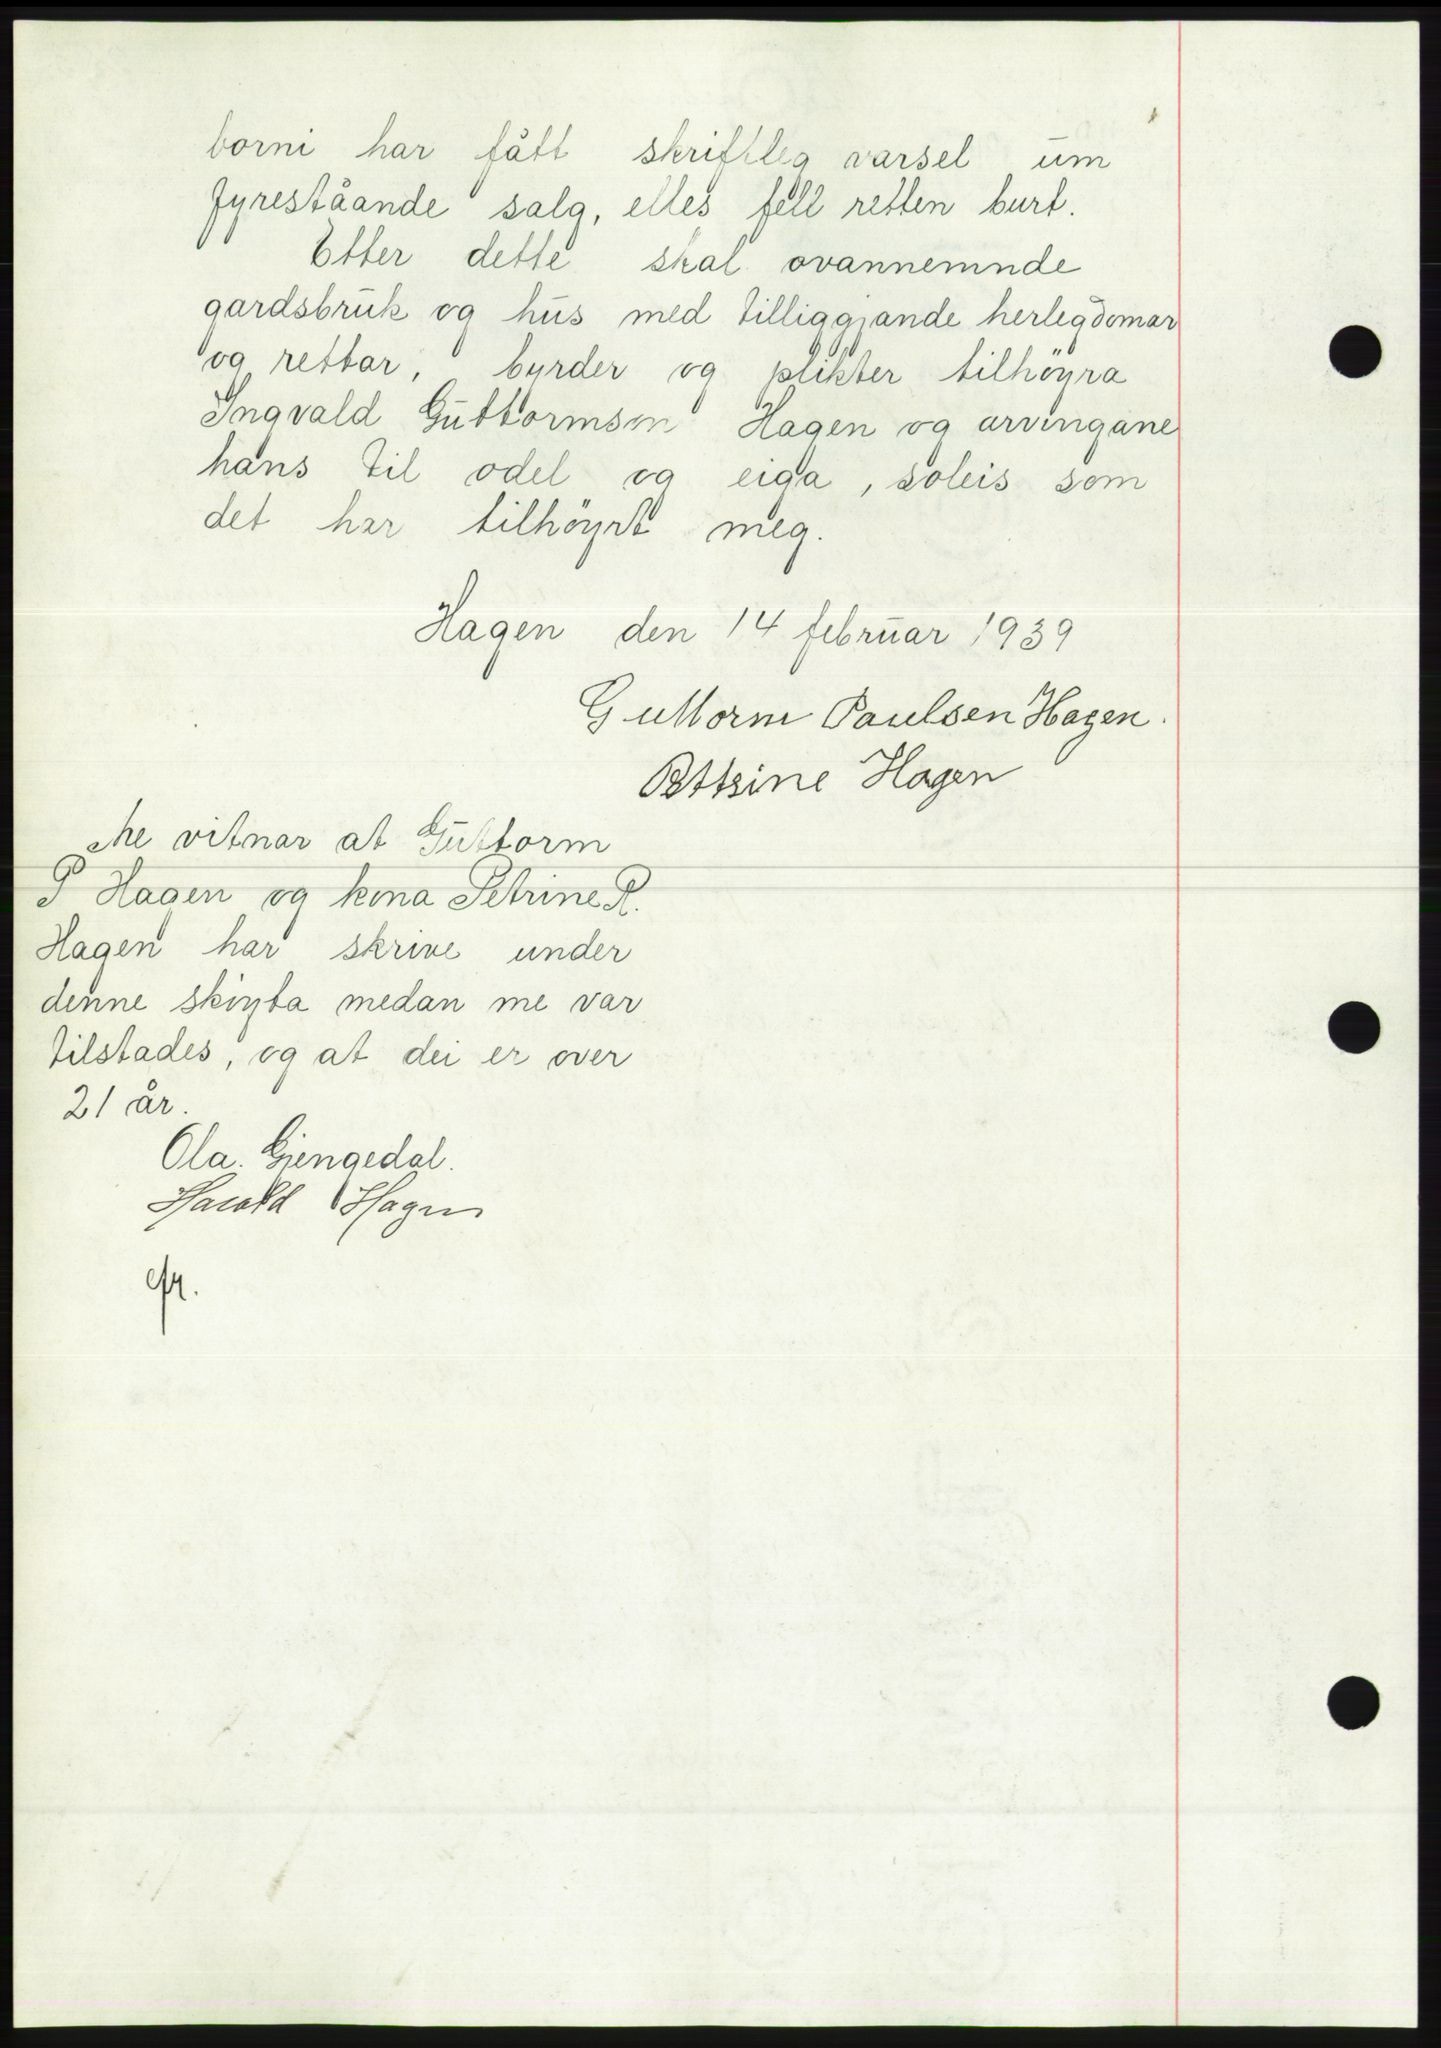 borni har fått skriftleg varsel um
fyreståande salg, elles fell retten burt.
Etter dette skal ovannemnde
gardsbruk og hus med tilliggjande herlegdomar
og rettar, byrder og plikter tilhöyra
Ingvald Guttormsen Hagen og arvingane
hans til odel og eiga, soleis som
det har tilhöyrt meg.
Hagen den 14 februar 1939
Guttorm Paulsen Hagen.
Pettrine Hagen
Me vitnar at Guttorm
P Hagen og kona Petrine R.
Hagen har skrive under
denne skøyta medan me var
tilstades, og at dei er over
21 år.
Ola. Gjengedal.
Harald Hagen